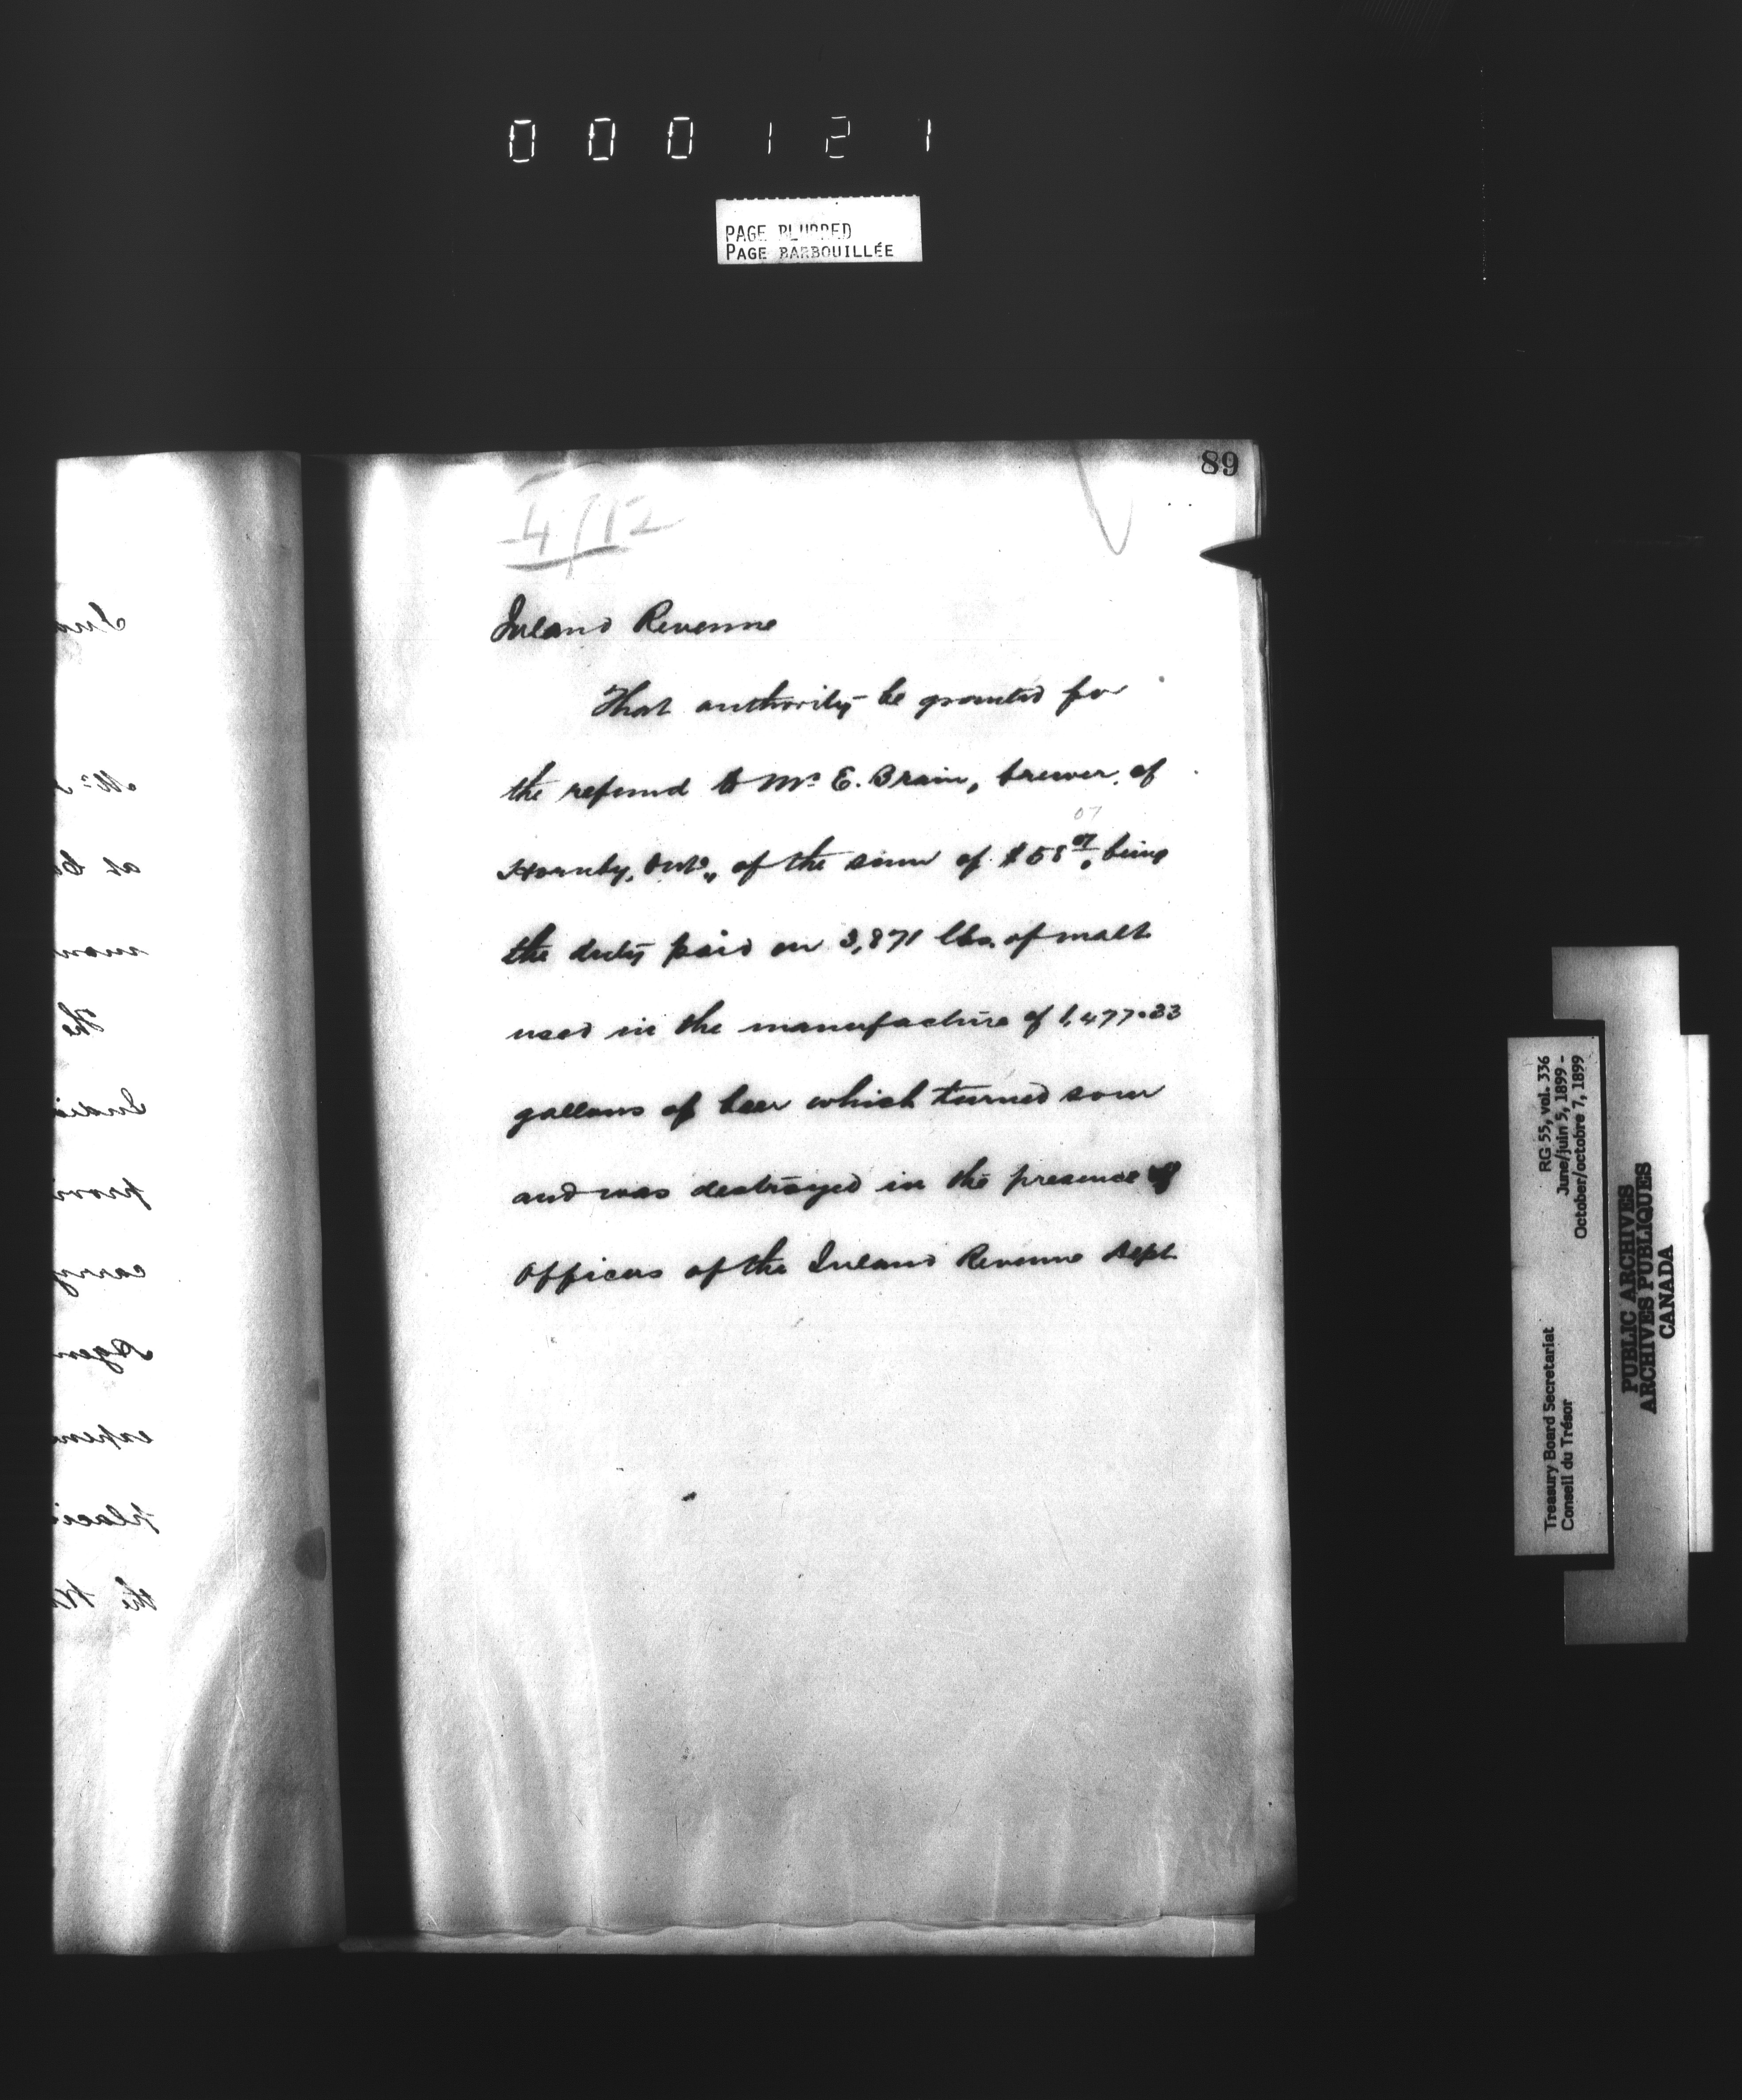 000121
PAGE BLURRED
PAGE BARBOUILLÉE
89
4/12
Inland Revenue
That authority be granted for
the refund to Mr. E. Brain, brewer, of
Hornby, Ont., of the sum of $58 07, being
07
the duty paid on 3,871 lbs. of malt
used in the manufacture of 1,477.33
gallons of beer which turned sour
and was destroyed in the presence of
Officers of the Inland Revenue Dept.
RG 55, vol. 336
June/juin 5, 1899 -
October/octobre 7, 1899
Treasury Board Secretariat
Conseil du Trésor
PUBLIC ARCHIVES
ARCHIVES PUBLIQUES
CANADA